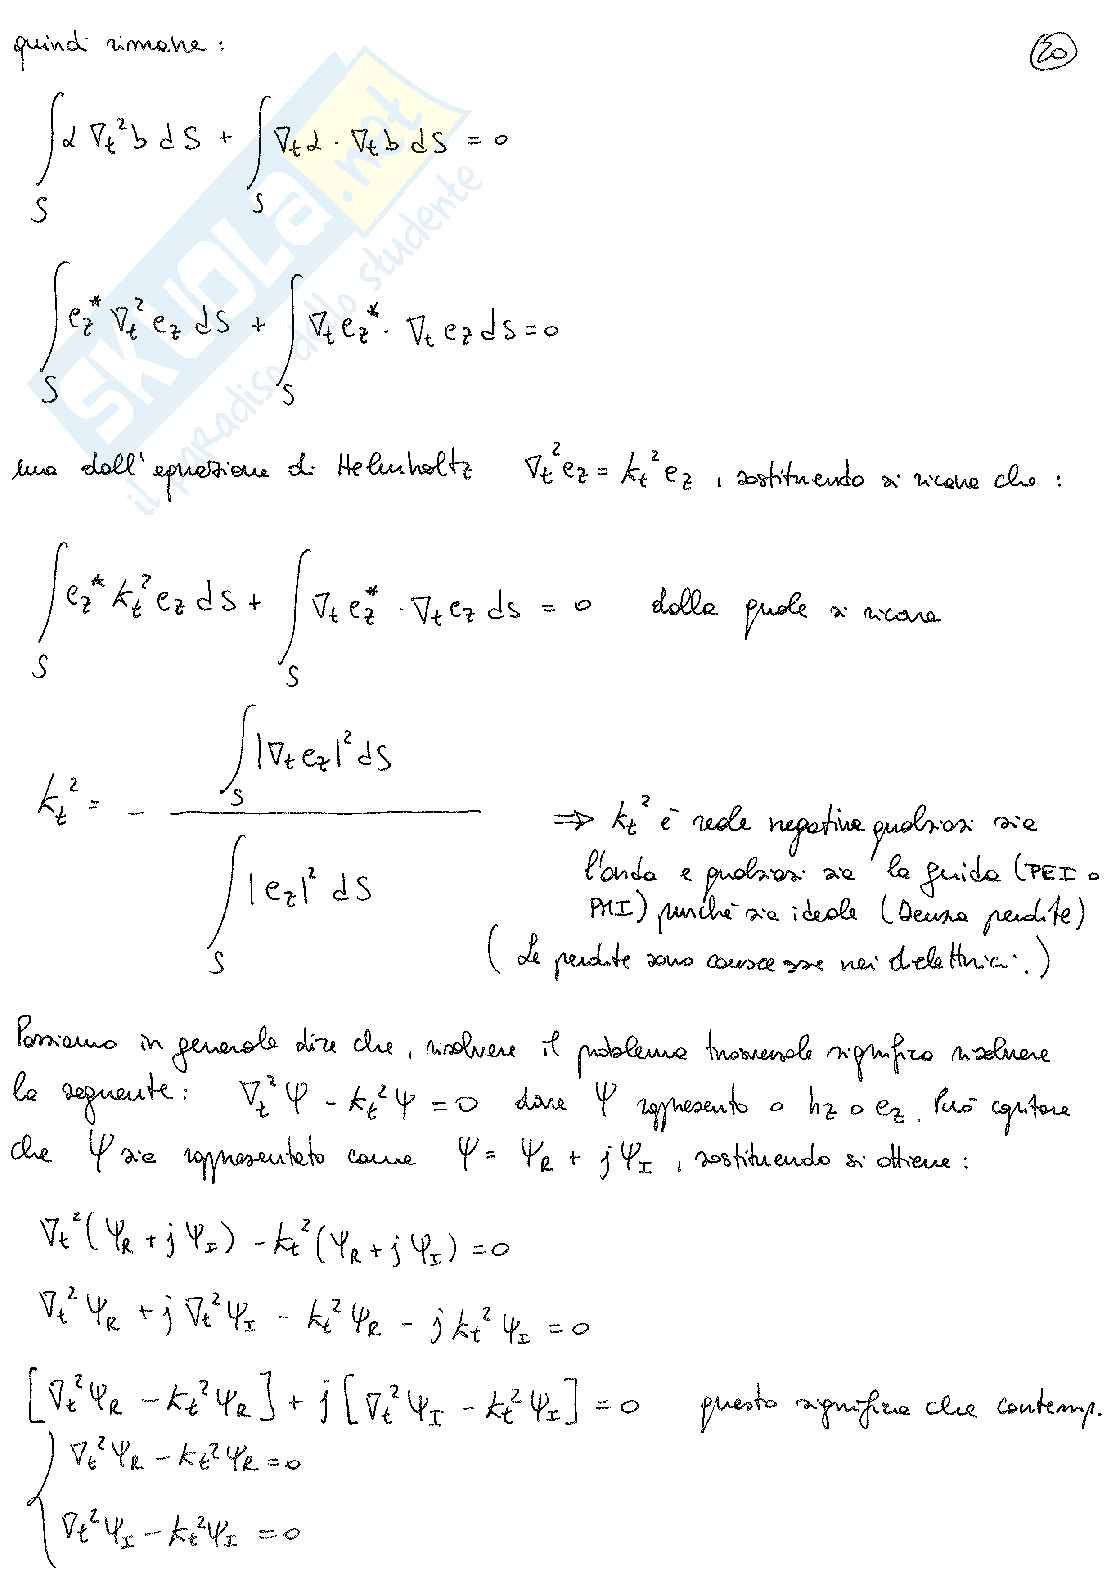 quindi rimane :
20
∫_S α ∇t² b dS + ∫_S ∇t α · ∇t b dS = 0
∫_S ez* ∇t² ez dS + ∫_S ∇t ez* · ∇t ez dS = 0
ma dall'equazione di Helmholtz ∇t² ez = kt² ez , sostituendo si ricava che :
∫_S ez* kt² ez dS + ∫_S ∇t ez* · ∇t ez dS = 0 dalla quale si ricava
kt² = - ∫_S |∇t ez|² dS / ∫_S |ez|² dS
⇒ kt² è reale negativa qualsiasi sia
l'onda e qualsiasi sia la guida (PEI o
PMI) purché sia ideale (senza perdite)
( Le perdite sono concesse nei dielettrici. )
Possiamo in generale dire che, risolvere il problema trasversale significa risolvere
la seguente : ∇t² Ψ - kt² Ψ = 0 dove Ψ rappresenta o hz o ez. Può capitare
che Ψ sia rappresentato come Ψ = ΨR + jΨI , sostituendo si ottiene :
∇t² (ΨR + jΨI) - kt² (ΨR + jΨI) = 0
∇t² ΨR + j ∇t² ΨI - kt² ΨR - j kt² ΨI = 0
[∇t² ΨR - kt² ΨR] + j [∇t² ΨI - kt² ΨI] = 0 questo significa che contemp.
{ ∇t² ΨR - kt² ΨR = 0
∇t² ΨI - kt² ΨI = 0
SKUOLA.net
il paradiso dello studente